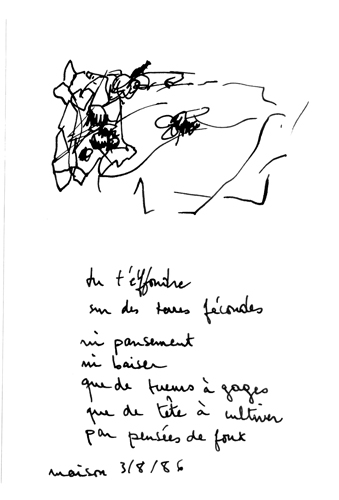 tu t'effondre
sur des terres fécondes
ni pansement
ni baiser
que de tueurs à gages
que de tête à cultiver
par pensées de
maison 3/8/86